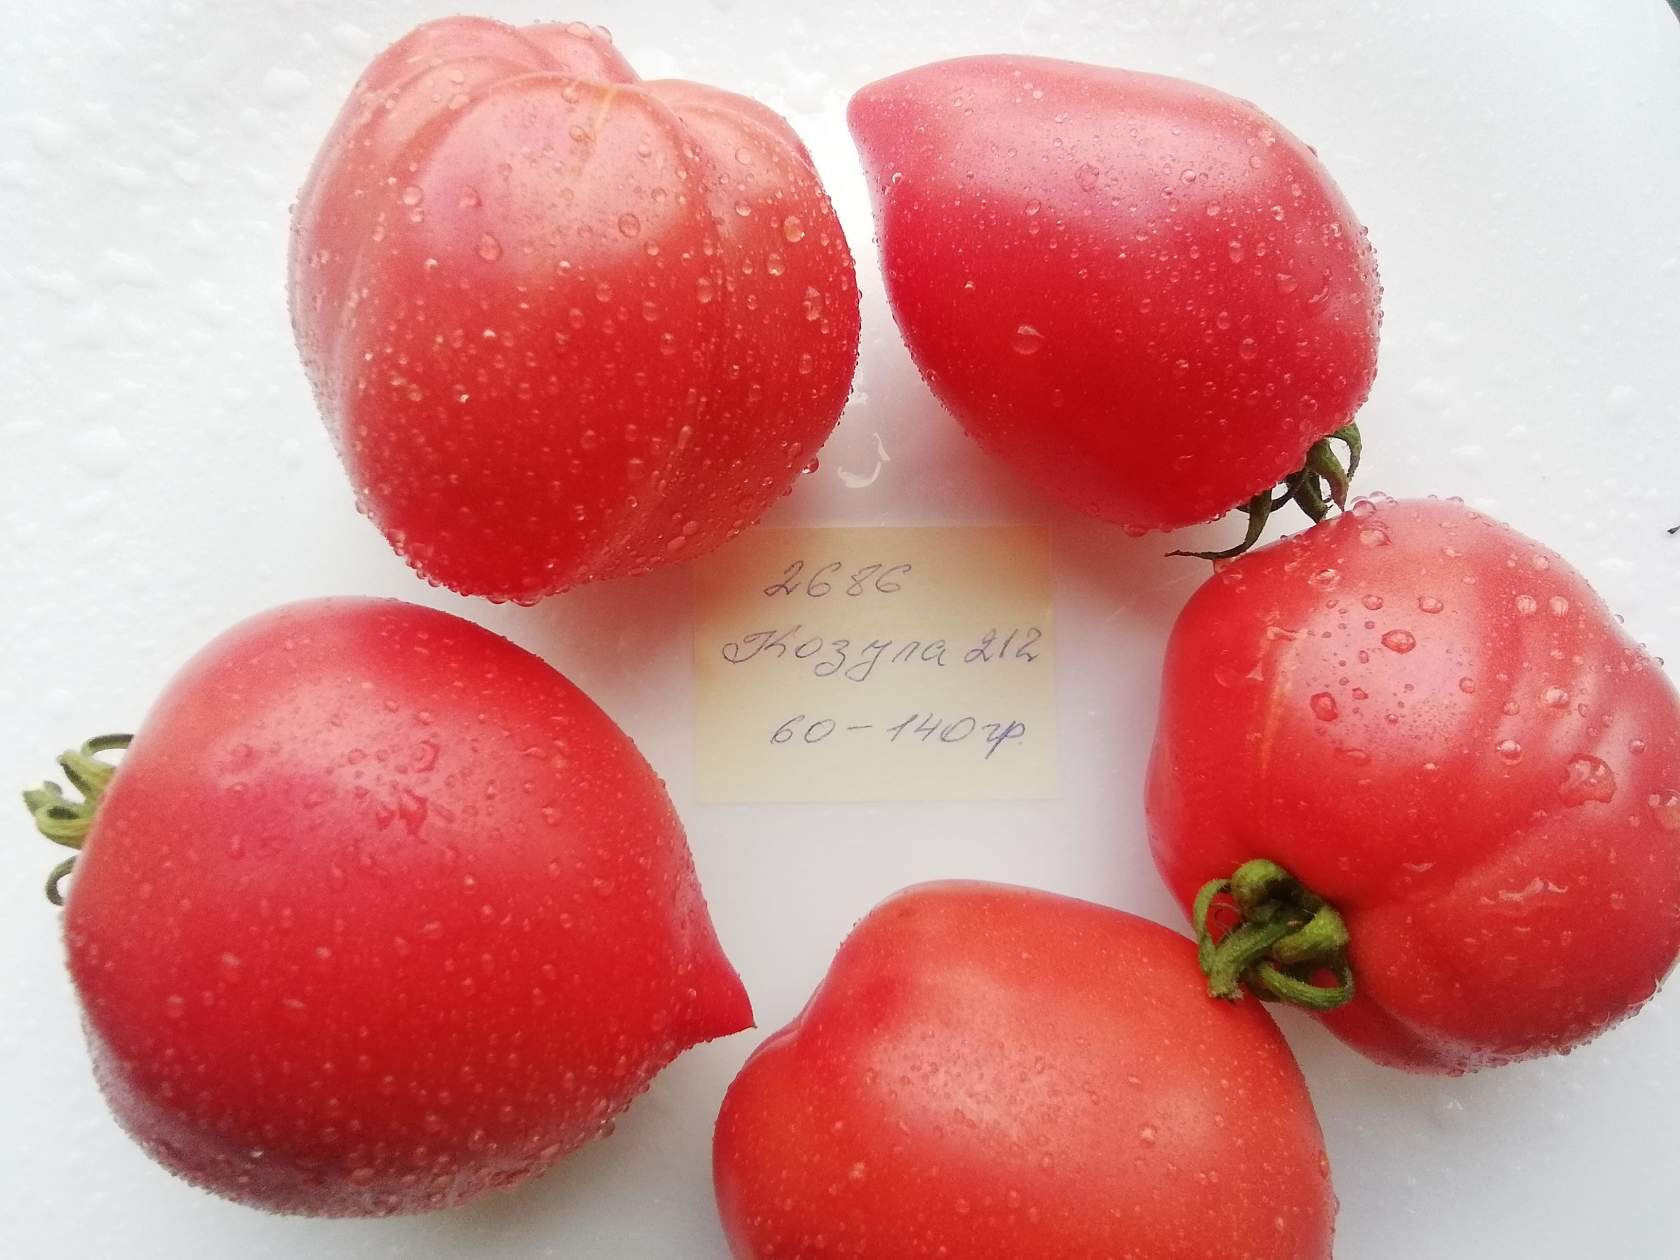 2686
Козула 212
60-140гр.